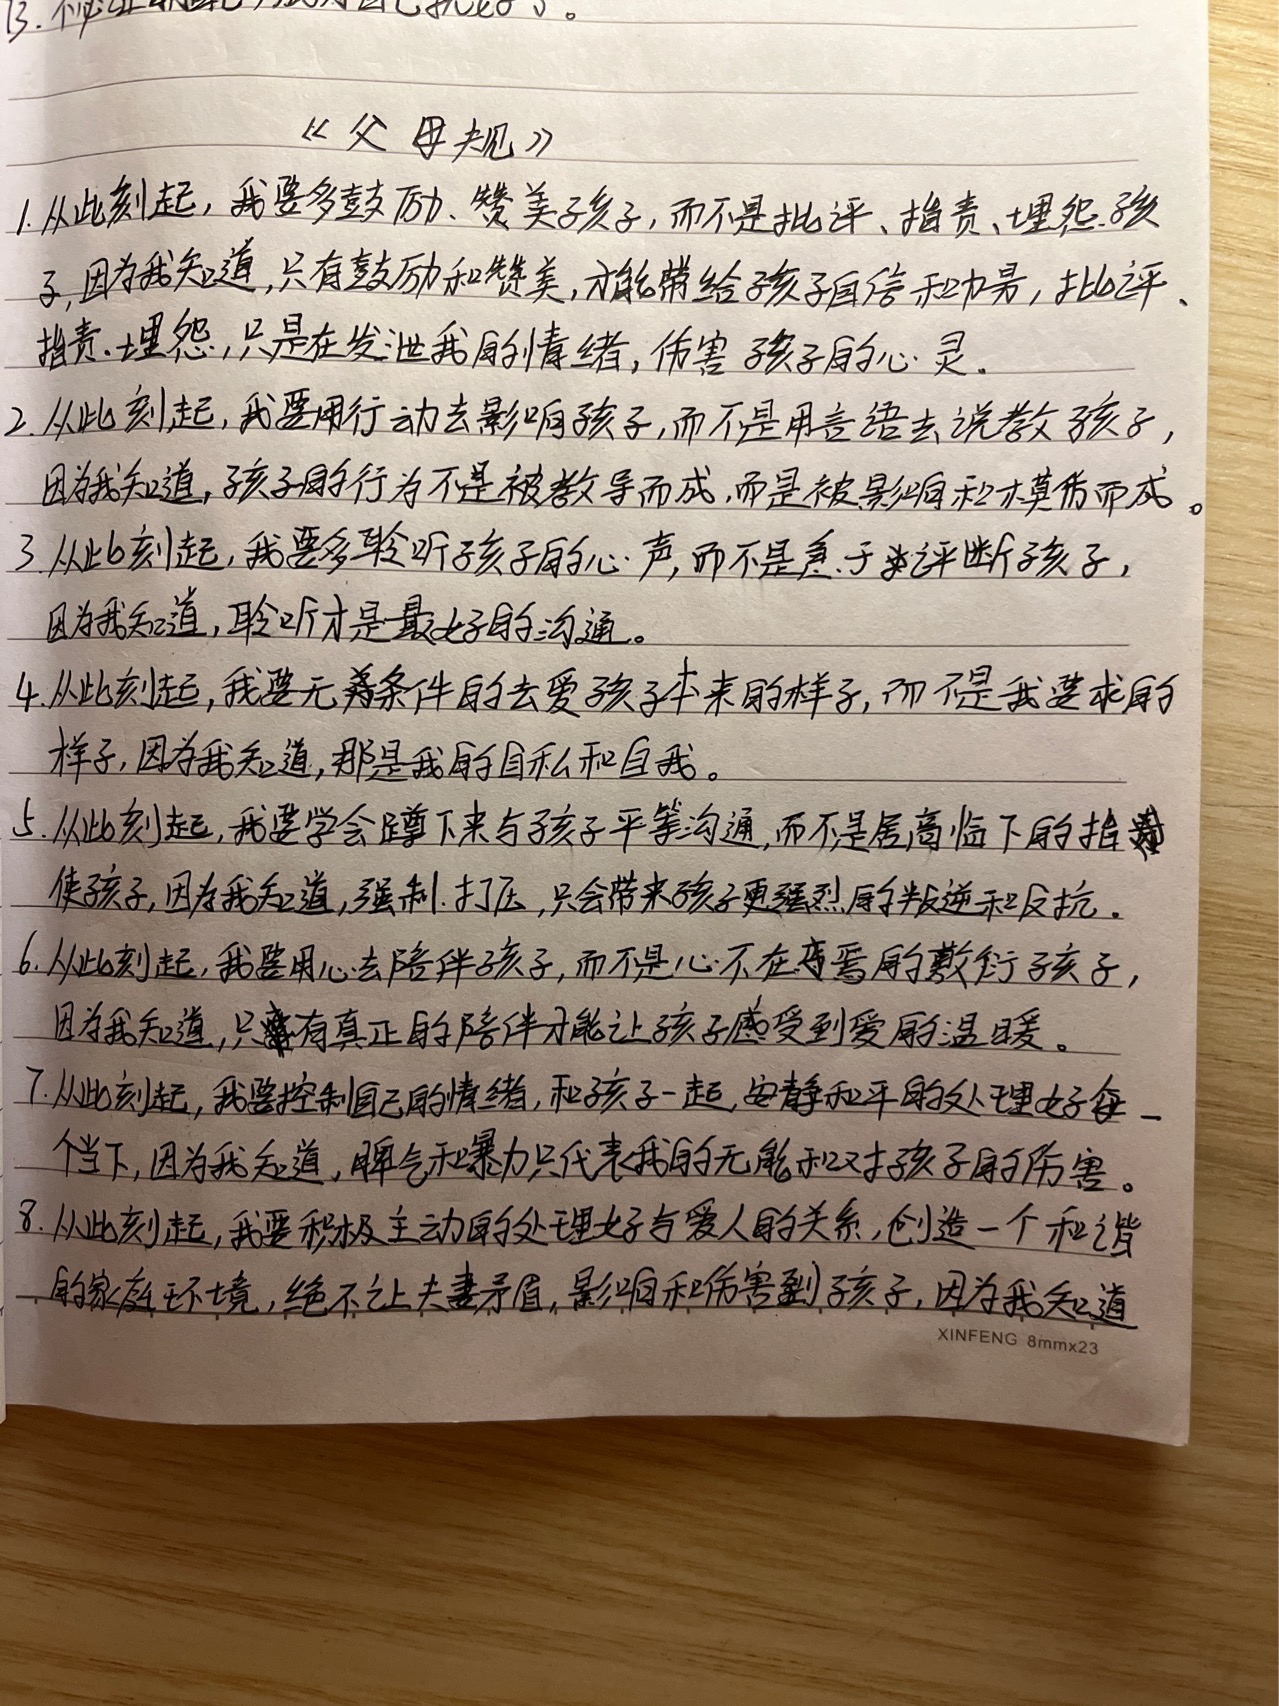 13.
《父母规》
1.从此刻起,我要多鼓励、赞美孩子,而不是批评、指责、埋怨孩
子,因为我知道,只有鼓励和赞美,才能带给孩子自信和力量,批评、
指责、埋怨,只是在发泄我的情绪,伤害孩子的心灵.
2.从此刻起,我要用行动去影响孩子,而不是用言语去说教孩子,
因为我知道,孩子的行为不是被教导而成,而是被影响和模仿而成。
3.从此刻起,我要多聆听孩子的心声,而不是急于评断孩子,
因为我知道,聆听才是最好的沟通。
4.从此刻起,我要无条件的去爱孩子本来的样子,而不是我要求的
样子,因为我知道,那是我的自私和自我。
5.从此刻起,我要学会蹲下来与孩子平等沟通,而不是居高临下的指
使孩子,因为我知道,强制.打压,只会带来孩子更强烈的叛逆和反抗.
6.从此刻起,我要用心去陪伴孩子,而不是心不在焉的敷衍孩子,
因为我知道,只有真正的陪伴才能让孩子感受到爱的温暖。
7.从此刻起,我要控制自己的情绪,和孩子一起,安静和平的处理好每一
个当下,因为我知道,脾气和暴力只代表我的无能和对孩子的伤害。
8.从此刻起,我要积极主动的处理好与爱人的关系,创造一个和谐
的家庭环境,绝不让夫妻矛盾,影响和伤害到孩子,因为我知道
XINFENG 8mmx23